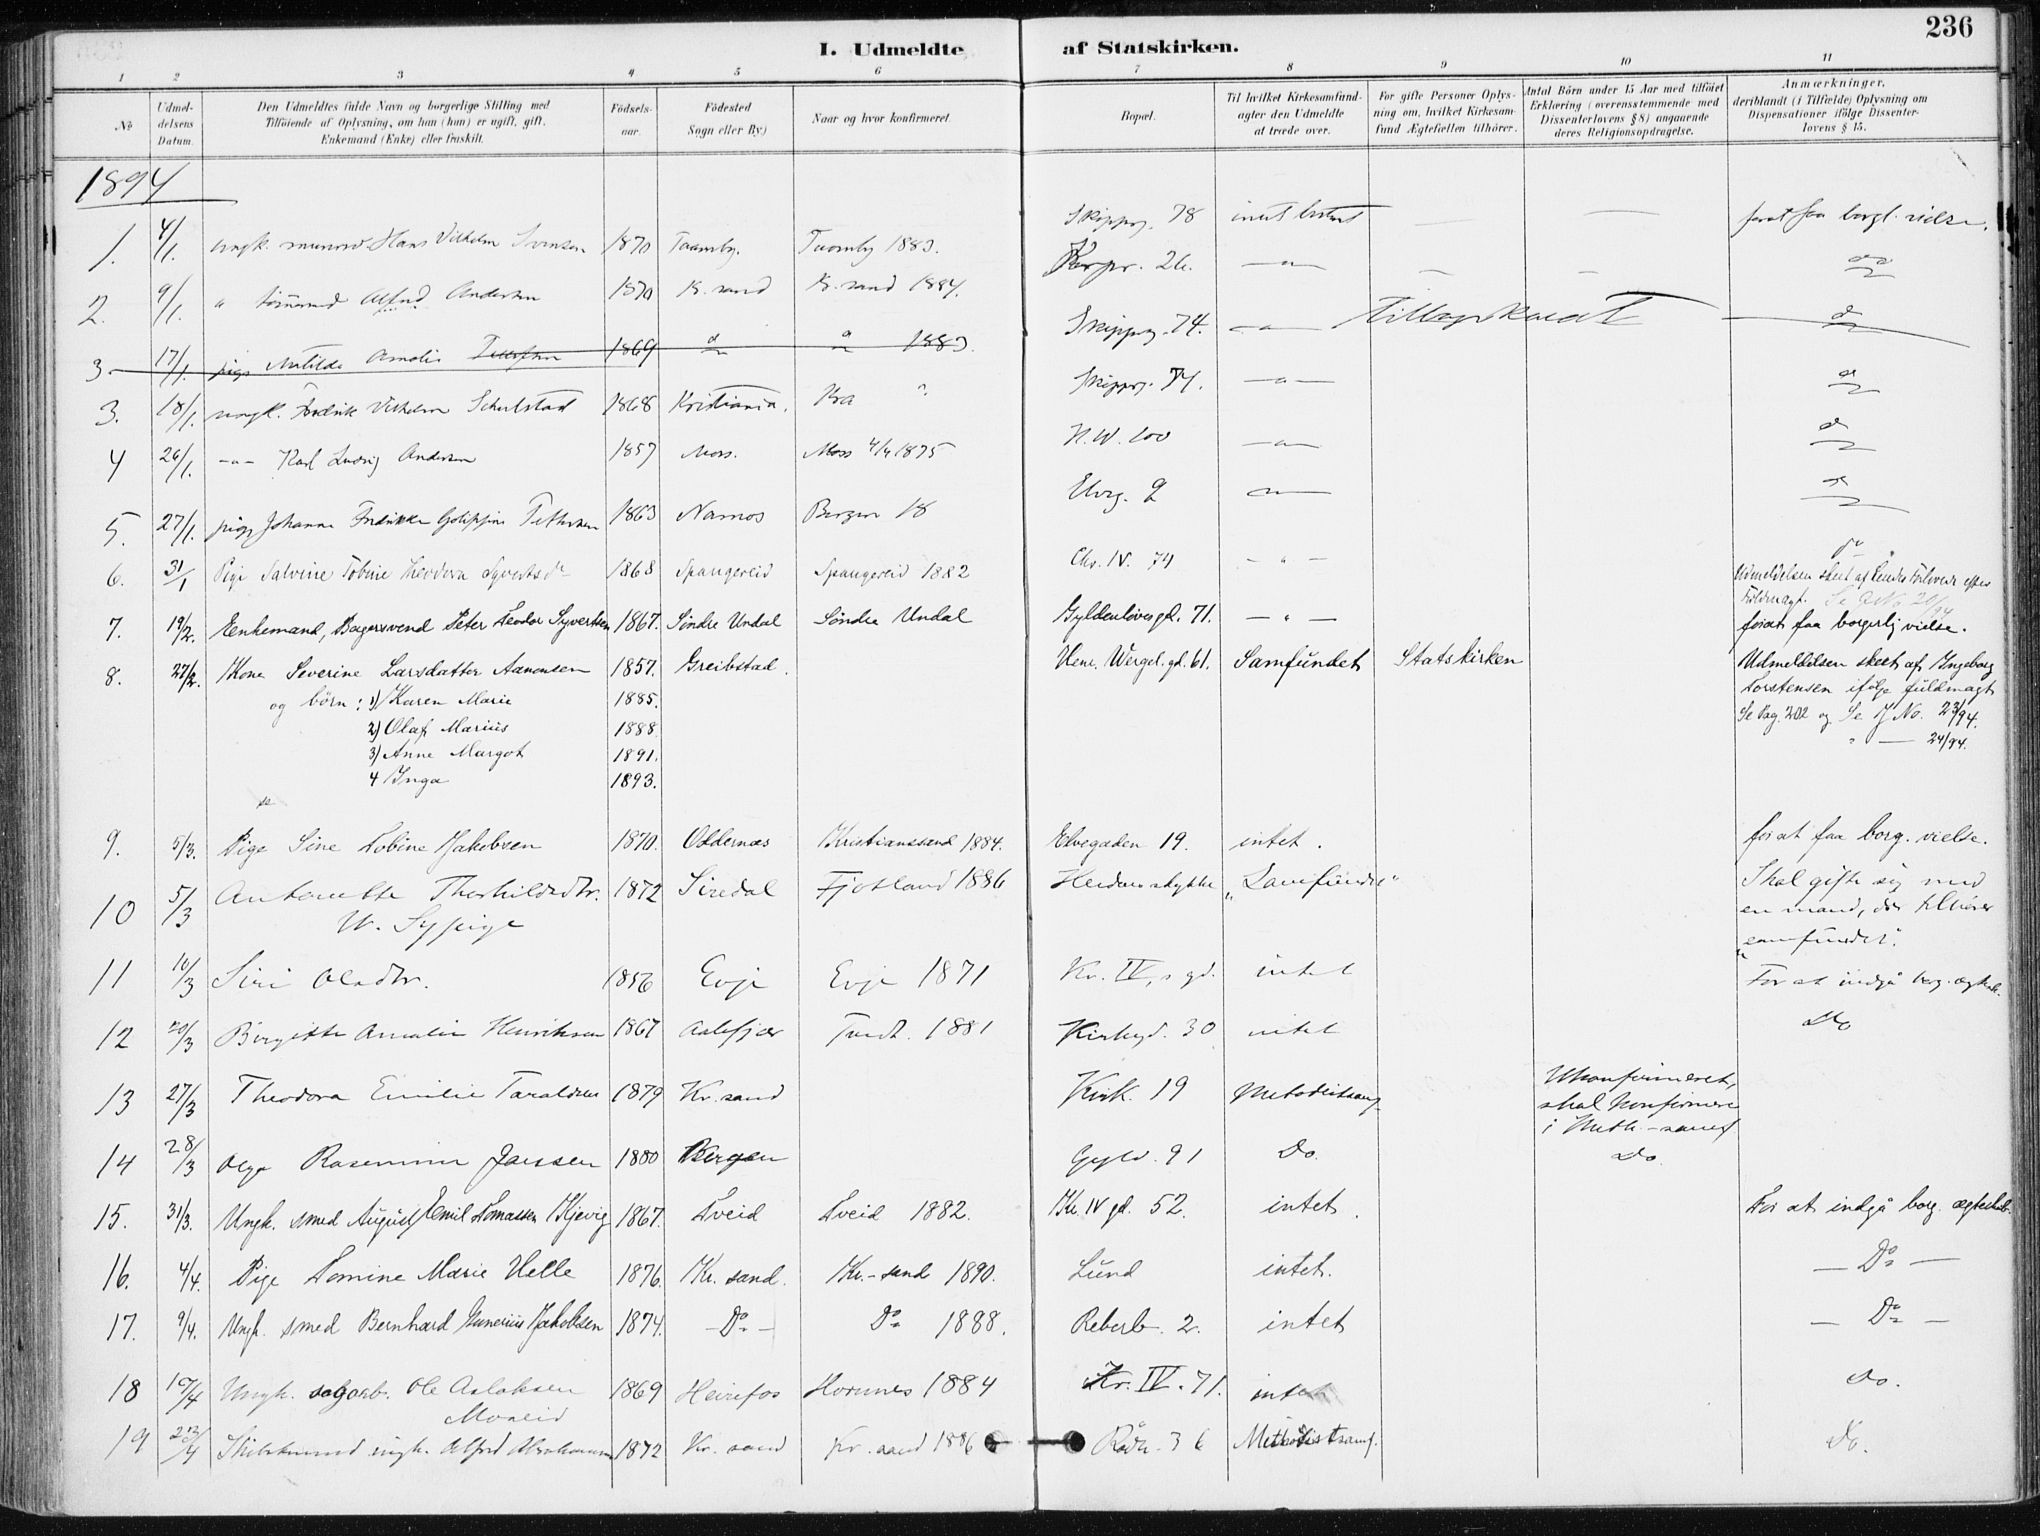 236
I. Udmeldte af Statskirken.
1 2 3 4 5 6 7 8 9 10 11
No
Udmeldelsens Datum.
Den Udmeldtes fulde Navn og borgerlige Stilling med
Tilföiende af Oplysning, om han (hun) er ugift, gift,
Enkemand (Enke) eller fraskilt.
Födselsaar.
Födested
Sogn eller By)
Naar og hvor konfirmeret.
Bopæl.
Til hvilket Kirkesamfund
agter den Udmeldte
at træde over.
For gifte Personer Oplysning om, hvilket Kirkesamfund Ægtefællen tilhörer.
Antal Börn under 15 Aar med tilföiet
Erklæring (overensstemmende med
Dissenterlovens § 8) angaaende
deres Religionsopdragelse.
Anmærkninger,
deriblandt (i Tilfælde) Oplysning om
Dispensationer ifölge Dissenterlovens § 15.
1894
1. 4/1. ungk. Hans Vilhelm Svensen 1870 Taarnby. Taarnby 1883. Skipperg. 78 intet for at faa borgl. vielse.
2. 9/1. " Alfred Andersen 1870 K.sand K.sand 1884. 26. — " — do
3. 17/1. pige Matilde Amalie 1869 do 1883. Skipperg. 74. — " — Tilbagekaldt do
3. 18/1. ungk. Fredrik Vilhelm Schulstad 1868 Kristiania. Kra Skipperg. 74. — " — do
4 26/1. — " — Karl Ludvig Andersen 1857 Moss. Moss 4/4 1875 H.W. 100 — " — do
5. 27/1. pige Johanne Fredrikke 1863 Namsos Bergen 18 Elvg. 9 — " — do
6. 31/1 Pige Salvine Tobine Theodora Syvertsdtr 1868 Spangereid Spangereid 1882 Chr. IV. 74 — " — do
Udmeldelsen skeet af hendes Forlovede efter
Fuldmagt.
7. 19/2. Enkemand, Bagersvend Peter Teodor Syvertsen 1867. Söndre Undal Söndre Undal Gyldenlövesgd. 71. — " — for at faa borgerlig vielse.
8. 27/2. Kone Severine Larsdatter Aanonsen 1857. Greibstad. Henr. Wergel. gd. 61. Samfundet Statskirken Udmeldelsen skeet af Ingeborg
og börn: 1) Karen Marie 1885. Torstensen ifölge fuldmagt
2) Olaf Marius 1888. Se Pag. 202 og Se J No. 23/94.
3) Anne Margot 1891. " — 24/94.
4 Inga 1893.
9. 5/3. Pige Sine Tobine Jakobsen 1870. Oddernæs Kristianssand 1884. Elvegaden 19. intet. for at faa borg. vielse.
10 5/3 Antonette Thorkildsdtr. 1872 Siredal Fjotland 1886 "Samfundet" Skal gifte sig med
U. Sypige en mand, der tilhører
"samfundet".
11 16/3 Siri Olsdtr. 1856 Evje Evje 1871 Kr. IV, s gd. intet For at indgå borg. ægtesk.
12 20/3 Birgitte Amalie Henriksen 1867 Tvedt. 1881 Kirkegd. 30 intet Do
13 27/3 Theodora Emilie Taraldsen 1879 Kr.sand Kirk. 19 Metodistsamf. Ukonfirmeret,
skal konfirmere
i Meth.-samf
14 28/3 Olga Rasmine Janssen 1880 Bergen Gyld. 91 Do. Do.
15. 31/3. Ungk. smed August Emil Tomassen Kjevig 1867. Tveid Tveid 1882. Kr. IV gd. 52. intet. For at indgå borg. ægteskab.
16. 4/4. Pige Tomine Marie Helle 1876. Kr. sand. Kr.-sand 1890. Lund intet. — Do —
17. 9/4. Ungk. smed Bernhard Gunerius Jakobsen 1874. — Do — Do 1888. Reberb. 2. intet — Do —
18 10/4 Ungk. Ole Aslaksen 1869 Heirefos Hornnes 1884 Kr. IV. 71. intet Do.
Moseid
19 23/4 ungk. Alfred Abrahamsen 1872 Kr. sand Kr. sand 1886 Rådh. 36 Methodistsamf. Do.